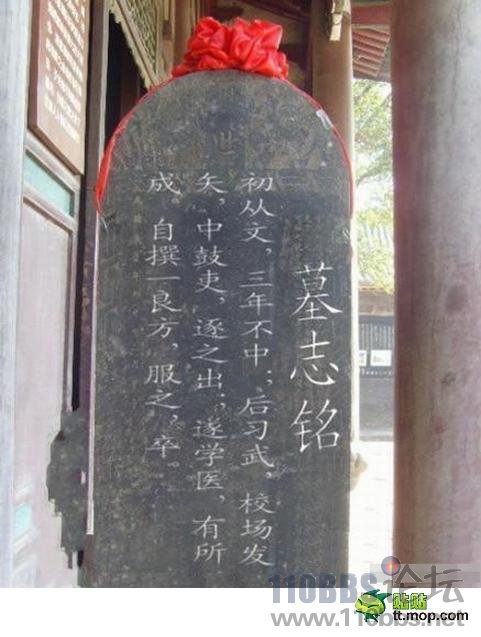 墓志铭
初从文，三年不中；后习武，校场发
矢，中鼓吏，逐之出；遂学医，有所
成。自撰一良方，服之，卒。
世
110BBS论坛
www.110bbs.net
贴贴
tt.mop.com